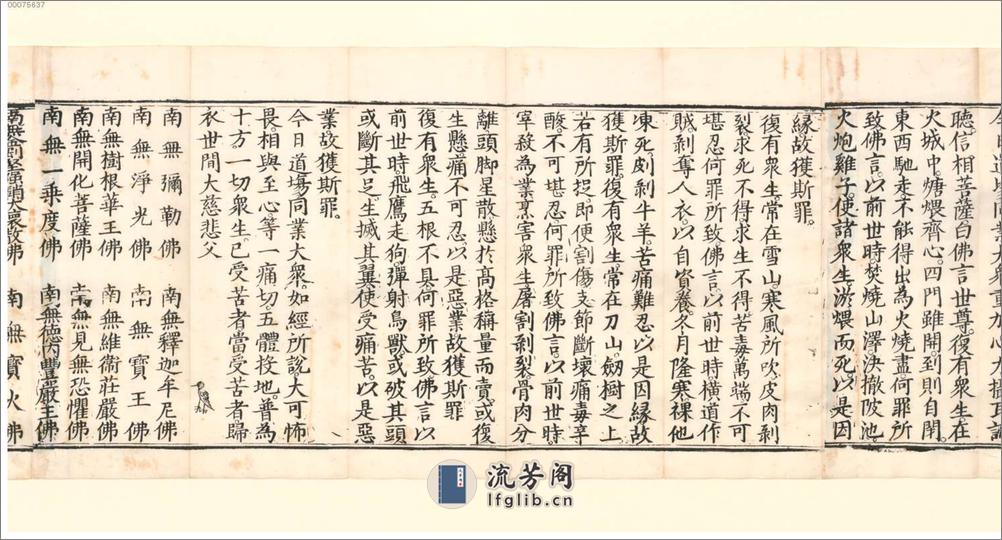 00075637
聽信相菩薩白佛言世尊復有衆生在
火城中煻煨齊心四門雖開到則自閇
東西馳走不能得出為火燒盡何罪所
致佛言以前世時焚燒山澤決撤陂池
火炮雞子使諸衆生淤煨而死以是因
緣故獲斯罪
復有衆生常在雪山寒風所吹皮肉剥
裂求死不得求生不得苦毒萬端不可
堪忍何罪所致佛言以前世時橫道作
賊剥奪人衣以自資養冬月隆寒裸他
凍死剥牛羊苦痛難忍以是因緣故
獲斯罪復有衆生常在刀山劒樹之上
若有所捉即便割傷支節斷壞痛毒辛
酸不可堪忍何罪所致佛言以前世時
宰殺為業烹害衆生屠割剥裂骨肉分
離頭脚星散懸於高格稱量而賣或復
生懸痛不可忍以是惡業故獲斯罪
復有衆生五根不具何罪所致佛言以
前世時飛鷹走狗彈射鳥獸或破其頭
或斷其足生搣其翼使受痛苦以是惡
業故獲斯罪
今日道場同業大衆如經所說大可怖
畏相與至心等一痛切五體投地普為
十方一切衆生已受苦者當受苦者歸
衣世間大慈悲父
南無彌勒佛 南無釋迦牟尼佛
南無淨光佛 南無寶王佛
南無樹根華王佛 南無維衛莊嚴佛
南無開化菩薩佛 南無見無恐懼佛
南無一乘度佛 南無德内豐嚴王佛
南無寶火佛
流芳阁
lfglib.cn